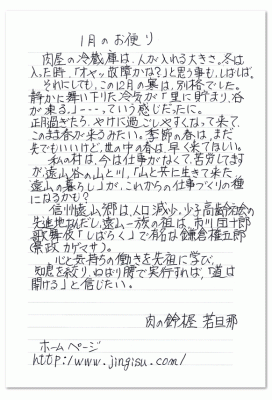 1月のお便り
肉屋の冷蔵庫は、人が入れる大きさ。冬は
入った時、「オヤッ故障かな?」と思う事も、しばしば。
それにしても、この12月の寒は、別格でした。
静かに舞い下りた冷気が「里に貯まり、谷
が凍る。」---、っていう感じだった。
正月過ぎたら、やけに過ごしやすくなって来て
このまま春が来るみたい。季節の春は、まだ
先でもいいけど、世の中の春は、早く来てほしい。
私の村は、今は仕事がなくて、苦労してます
が、遠山谷の山と川、「山と共に生きて来た
遠山の暮らし」が、これからの仕事づくりの種
になるかも?
信州遠山郷は、人口減少、少子高齢社会の
先進地なんだし、遠山一族の祖は、市川団十郎
歌舞伎「しばらく」で有名な鎌倉権五郎
(景政 カゲマサ)。
心と気持の働きを先祖に学び、
知恵を絞り、ねばり腰で実行すれば、「道は
開ける」と信じたい。
肉の鈴木屋 若旦那
ホームページ
http://www.jingisu.com/